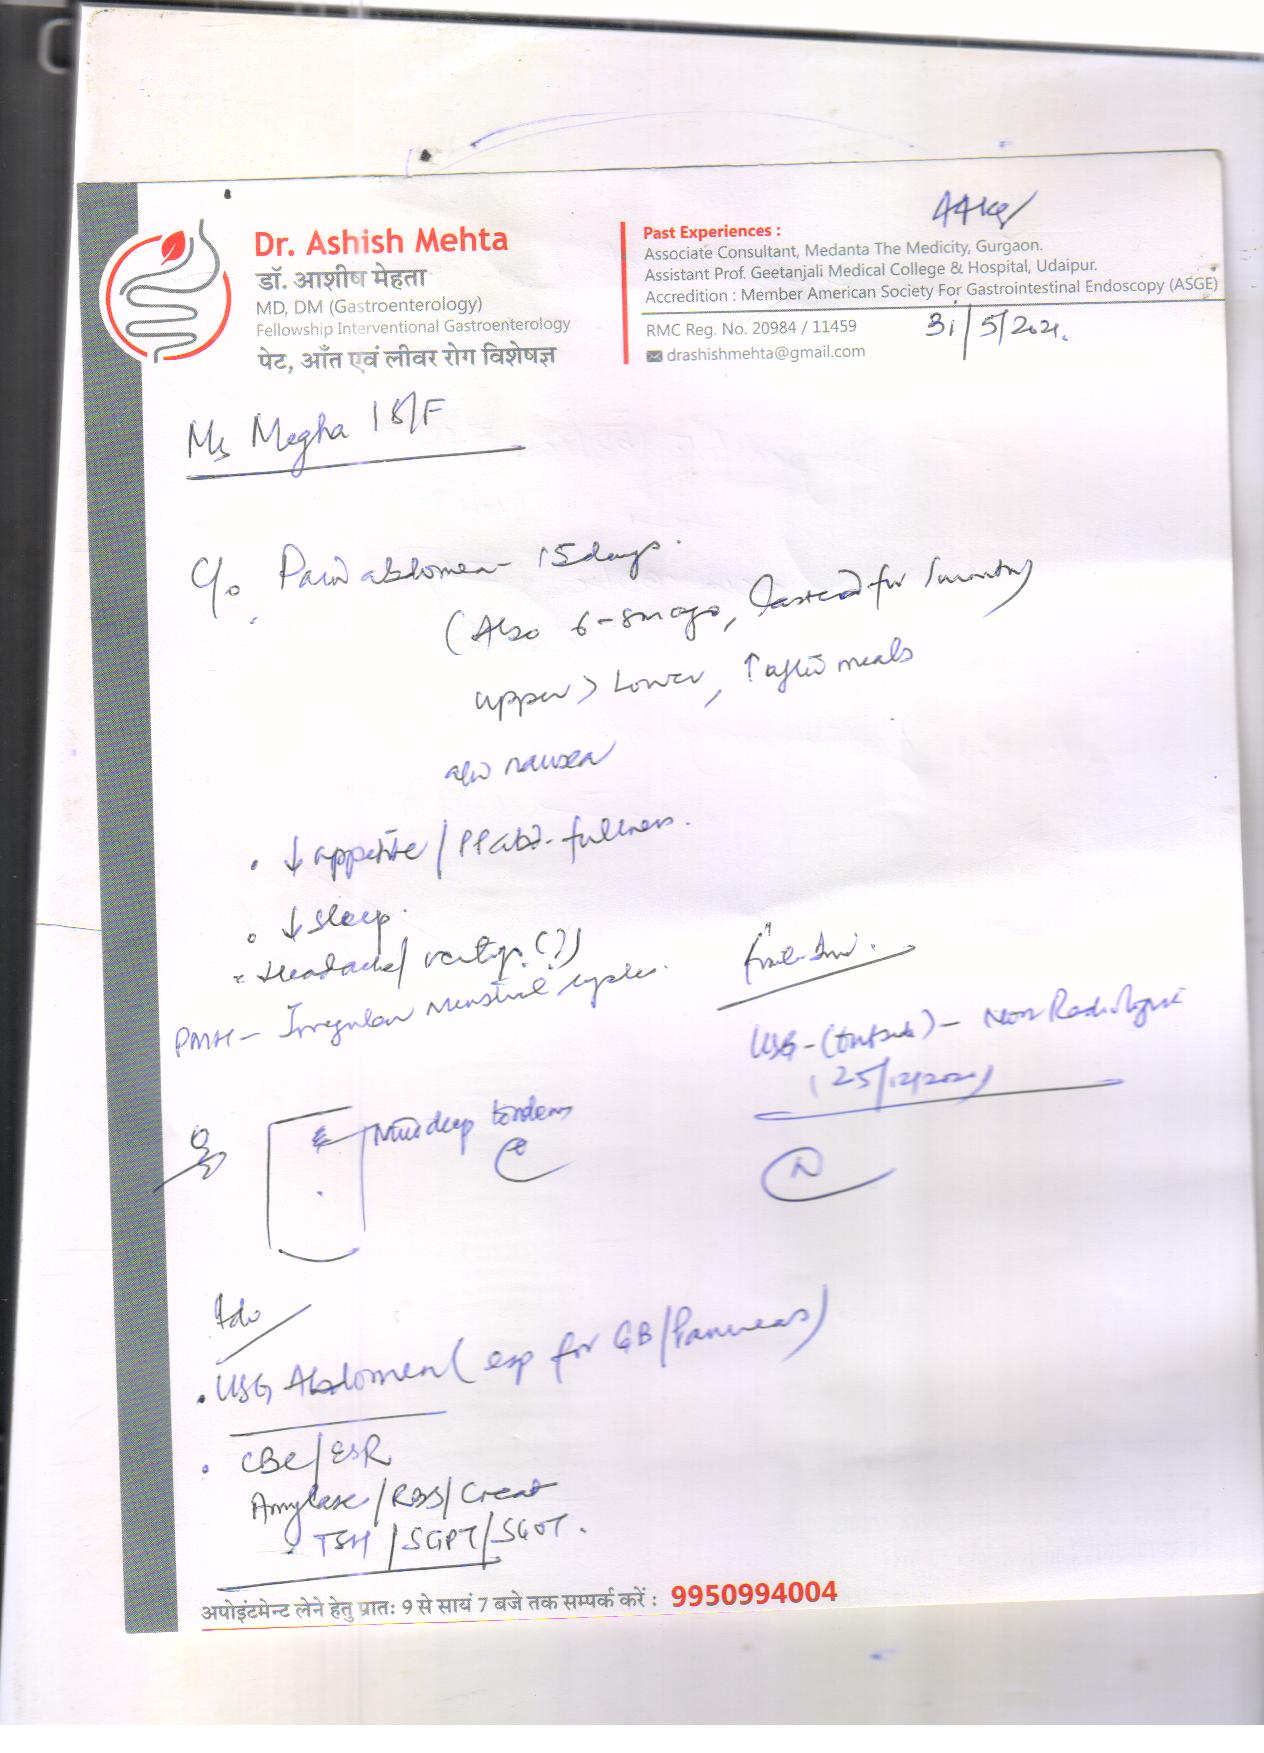 44kg
Dr. Ashish Mehta
डॉ. आशीष मेहता
MD, DM (Gastroenterology)
Fellowship Interventional Gastroenterology
पेट, आँत एवं लीवर रोग विशेषज्ञ
Past Experiences :
Associate Consultant, Medanta The Medicity, Gurgaon.
Assistant Prof. Geetanjali Medical College & Hospital, Udaipur.
Accreditation : Member American Society For Gastrointestinal Endoscopy (ASGE)
RMC Reg. No. 20984 / 11459
drashishmehta@gmail.com
31/5/2021.
Ms Megha 18/F
C/o Pain abdomen - 15 days.
(Also 6-8m ago, lasted for 1 month)
upper > Lower, ↑ after meals
a/w nausea
• ↓ appetite / PP abd. fullness.
• ↓ sleep.
Headache / vertigo (?)
PMH - Irregular menstrual cycles.
USG - (outside) - Non Radiologist
(25/12/2020)
Mild deep tenderness
N
Ado
• USG Abdomen (esp for GB/Pancreas)
• CBC/ESR
Amylase/RBS/Creat
TSH/SGPT/SGOT.
अपोइंटमेन्ट लेने हेतु प्रातः 9 से सायं 7 बजे तक सम्पर्क करें : 9950994004